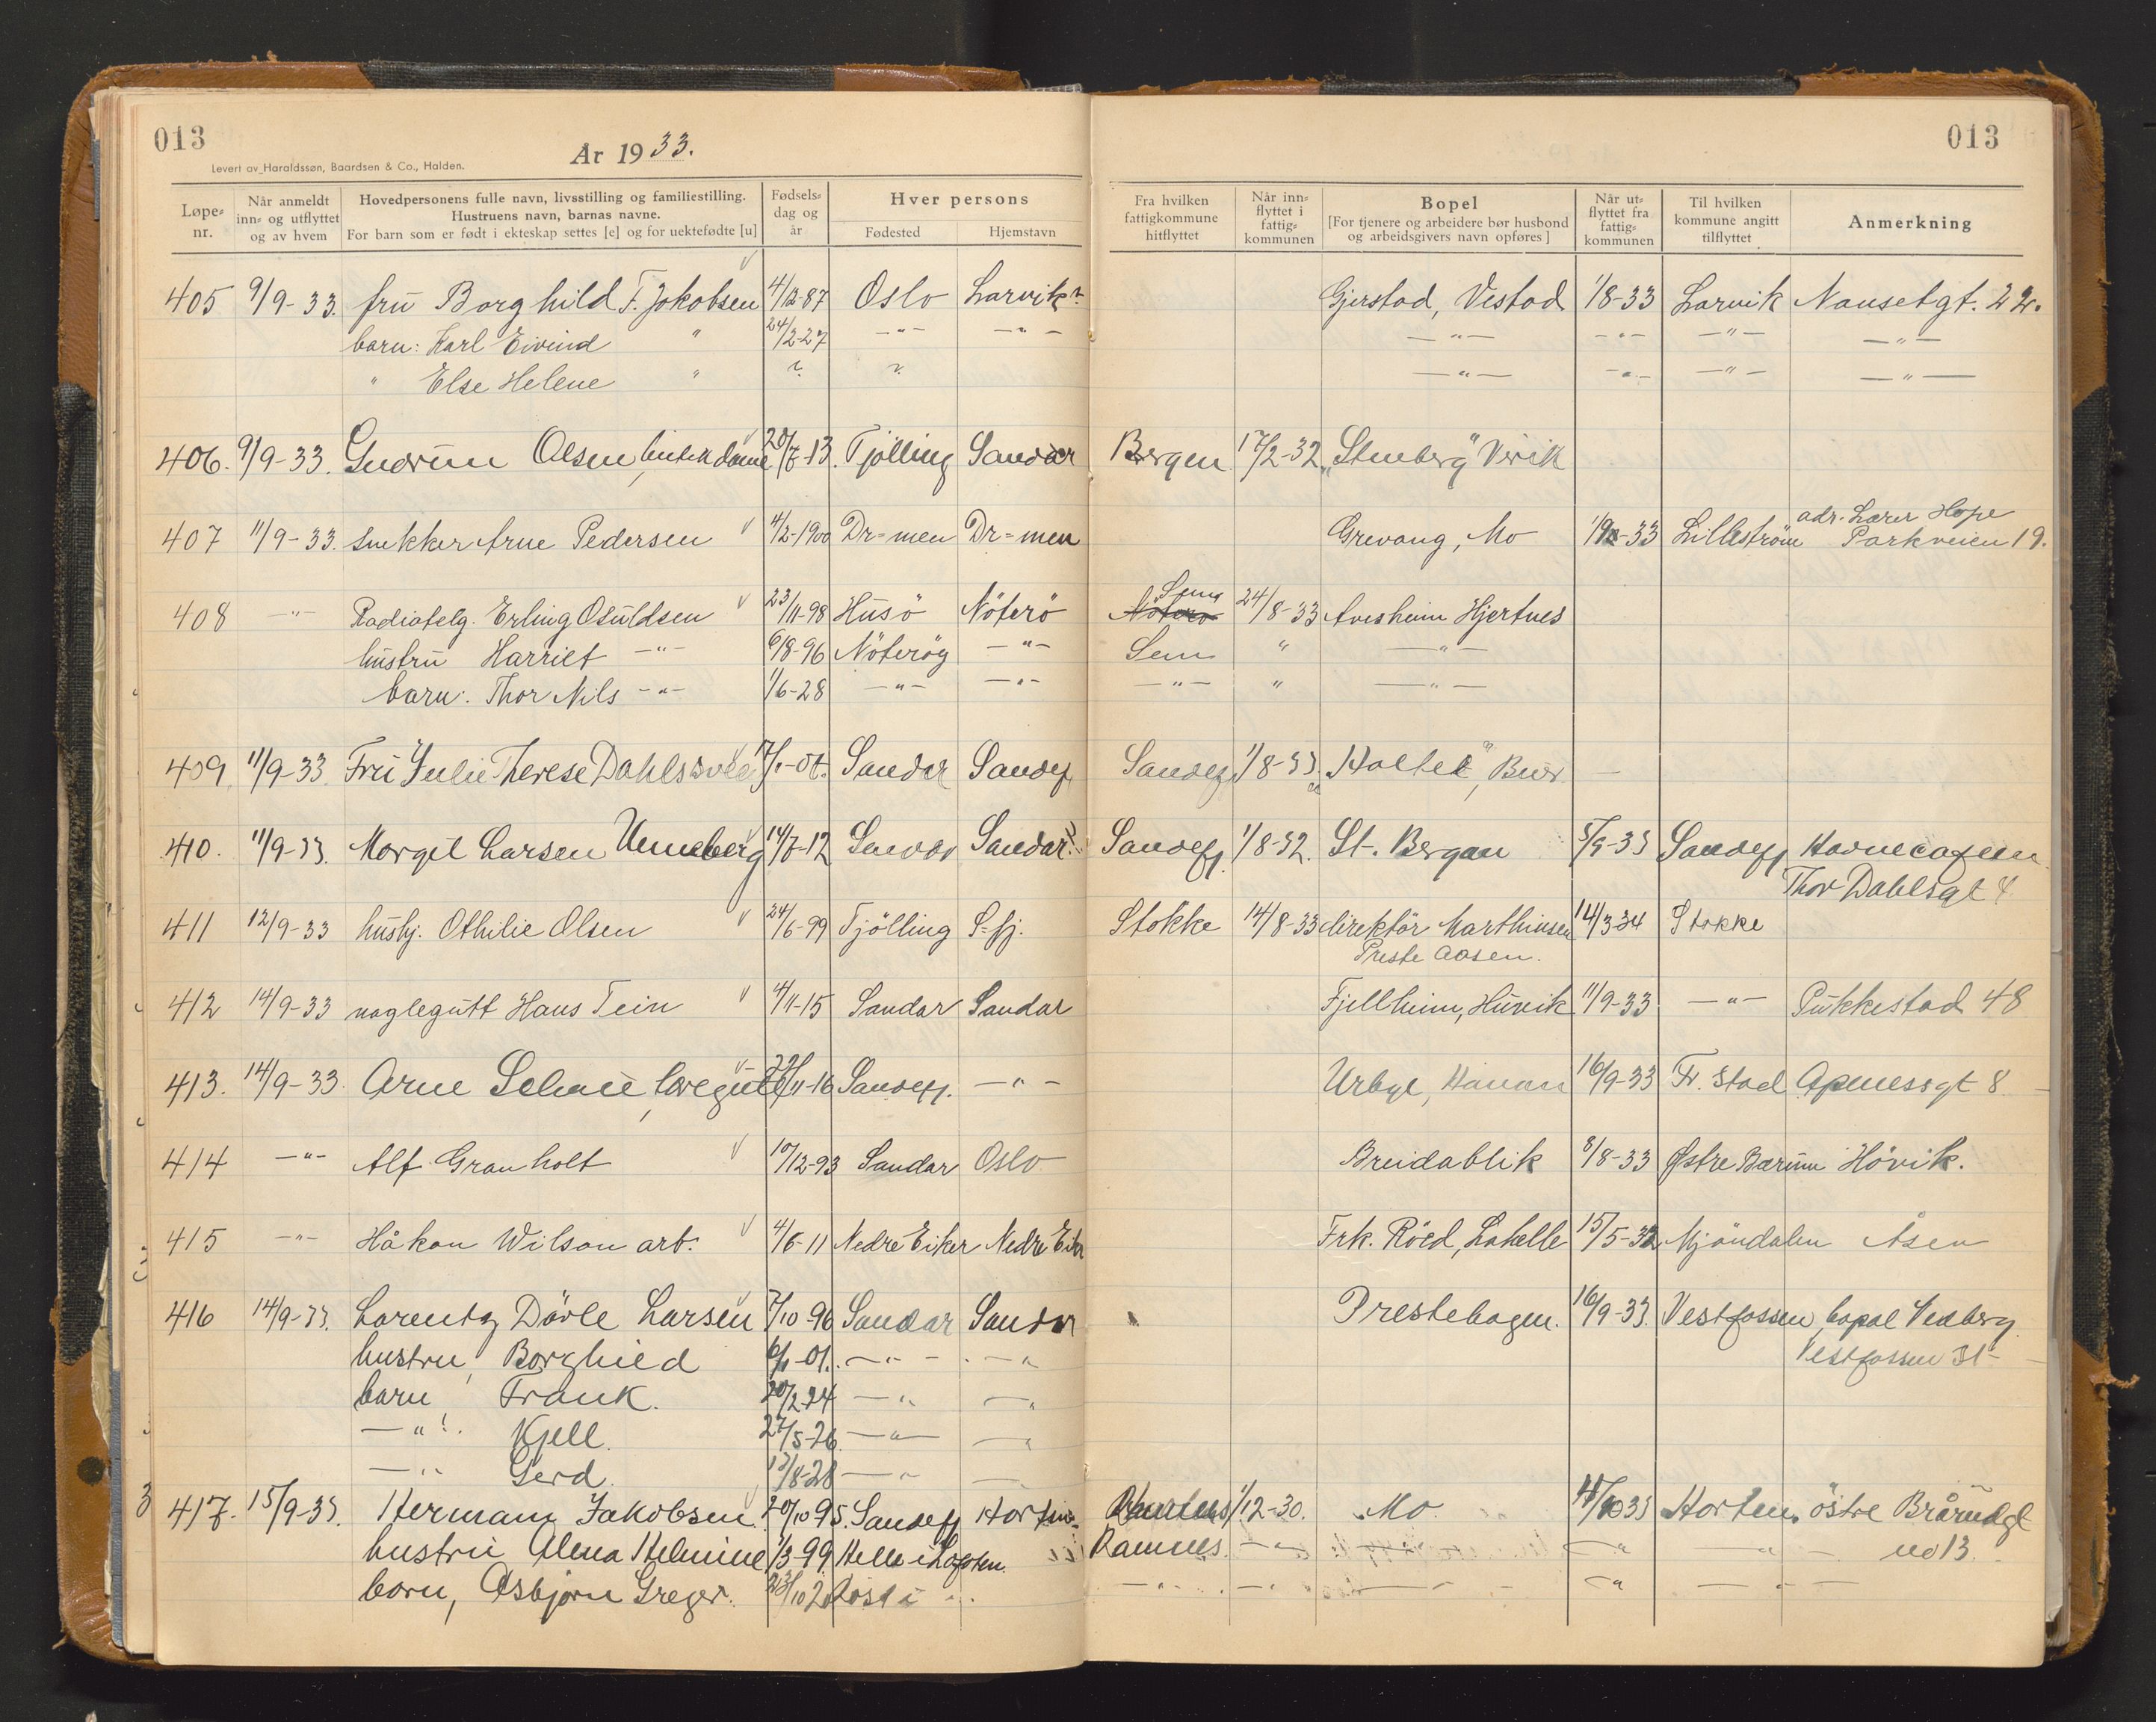 013
013
År 1933.
Levert av Haraldssøn, Baardsen & Co., Halden.
Løpe-nr. Når anmeldt inn- og utflyttet og av hvem Hovedpersonens fulle navn, livsstilling og familiestilling. Hustruens navn, barnas navne. For barn som er født i ekteskap settes [e] og for uektefødte [u] Fødsels-dag og år Hver persons Fødested Hjemstavn Fra hvilken fattigkommune hitflyttet Når inn-flyttet i fattig-kommunen Bopel [For tjenere og arbeidere bør husbond og arbeidsgivers navn opføres] Når ut-flyttet fra fattig-kommunen Til hvilken kommune angitt tilflyttet Anmerkning
405 9/9-33. fru Borghild F. Jakobsen 4/12-87 Oslo Larvik? Gjerstad, Vestad 1/8-33 Larvik Nansetgt. 22.
barn: Karl Eivind " 24/2-27 -"- -"- -"- -"- -"- -"-
" Else Helene " ? ? -"- -"- -"- -"-
406. 9/9-33. Gudrun Olsen, 20/7-13. Tjølling Sandar Bergen 17/2-32 "Stenberg" Virik
407 11/9-33. snekker Arne Pedersen 4/2-1900 Dr=men Dr=men Grevang, Mo -33 Lilleström adr. Lærer Hope
Parkveien 19.
408 -"- Radiotelg. Erling Osuldsen 23/11-98 Husö Nöterö Sem 24/8-33 Hjertnes
hustru Harriet -"- 6/8-96 Nöteröy -"- Sem " -"-
barn: Thor Nils -"- 1/6-28 -"- -"- -"- " -"-
409. 11/9-33. Fru Julie Therese Sandar Sandef. Sandefj 1/8-33. Bur
410. 11/9-33. Margit Larsen Unneberg 14/7-12 Sandar Sandar? Sandefj. 1/8-32. St. Bergan 5/9-33 Sandefj Havnecafeen
Thor Dahlsgt 4
411 12/9-33 hushj. Othilie Olsen 24/6-99 Tjölling S=fj. Stokke 14/8-33 direktör Marthinsen 14/3-34 Stokke
Preste Aasen.
412 14/9-33 naglegutt Hans Tein 4/11-15 Sandar Sandar Fjellheim, Huvik 11/9-33 -"- Pukkestad 48
413. 14/9-33. Arne 29/11-16 Sandefj. -"- Urbyl, 16/9-33 Fr. Stad Apenessgt 8
414 -"- Alf Granholt 10/12-93 Sandar Oslo Breidablik 8/8-33 Østre Bærum Hövik.
415 -"- Håkon Wilson arb. 4/6-11 Nedre Eiker Nedre Eiker Frk. Röed, Lahelle 15/5-32 Mjöndalen Åsen
416 14/9-33. Lorentz Dövle Larsen 7/10-96 Sandar Sandar Prestehagen. 16/9-33. Vestfossen, bopæl Vedberg
Vestfossen St
hustru, Borghild 6/1-01. -"- -"-
barn Frank. 20/2-24 -"- -"-
-"- Kjell. 27/5-26. -"- -"-
-"- Gerd. 13/8-28 -"-
417. 15/9-33. Hermann Jakobsen 20/10-95. Sandefj Horten. Ramnes 1/12-30. Mo 33 Horten. östre Brårudgt
no 13.
hustru Alma Helmine 1/3-99. Helle i Lofoten. Ramnes. -"- -"- -"-
barn, Asbjørn Greger. -"- -"- -"- -"-